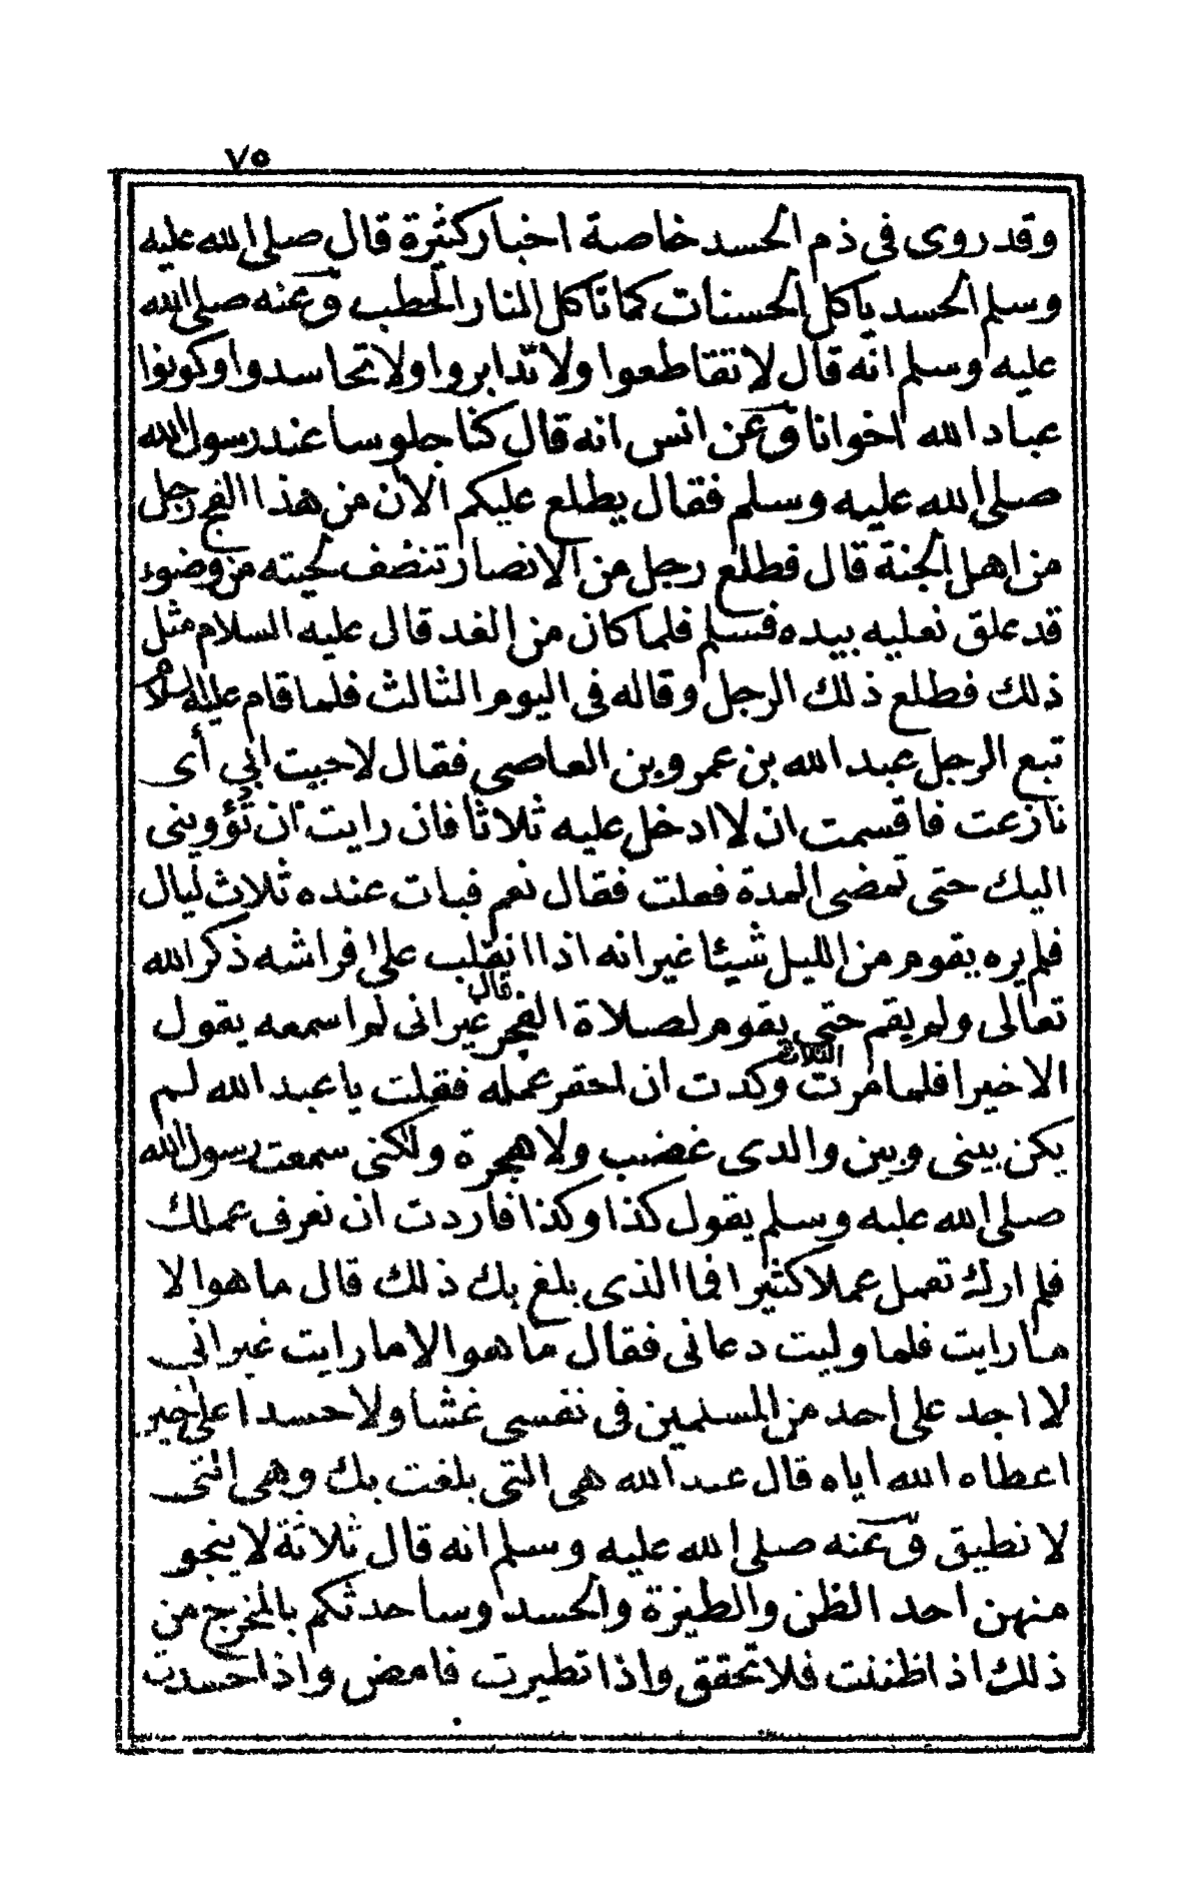 ٧٥
وقد روى فى ذم الحسد خاصة اخبار كثيرة قال صلى الله عليه
وسلم الحسد ياكل الحسنات كما تاكل النار الحطب وعنه صلى الله
عليه وسلم انه قال لا تقاطعوا ولا تدابروا ولا تحاسدوا وكونوا
عباد الله اخوانا وعن انس انه قال كنا جلوسا عند رسول الله
صلى الله عليه وسلم فقال يطلع عليكم الان من هذا الفج رجل
من اهل الجنة قال فطلع رجل من الانصار تنضف لحيته من وضوء
قد علق نعليه بيده فسلم فلما كان من الغد قال عليه السلام مثل
ذلك فطلع ذلك الرجل وقاله فى اليوم الثالث فلما قام عليه السلام
تبع الرجل عبد الله بن عمرو بن العاصى فقال لاحيت ابي أى
نازعت فاقسمت ان لا ادخل عليه ثلاثا فان رايت ان تؤوينى
اليك حتى تمضى المدة فعلت فقال نعم فبات عنده ثلاث ليال
فلم يره يقوم من الليل شيئا غير انه اذا انقلب على فراشه ذكر الله
تعالى ولم يقم حتى يقوم لصلاة الفجر قال غير انى لم اسمعه يقول
الا خيرا فلما مرت الثلاث وكدت ان احقر عمله فقلت يا عبد الله لم
يكن بينى وبين والدى غضب ولا هجرة ولكنى سمعت رسول الله
صلى الله عليه وسلم يقول كذا وكذا فاردت ان نعرف عملك
فلم ارك تعمل عملا كثيرا فما الذى بلغ بك ذلك قال ما هو الا
ما رايت فلما وليت دعانى فقال ما هو الا ما رايت غير انى
لا اجد على احد من المسلمين فى نفسى غشا ولا حسدا على خير
اعطاه الله اياه قال عبد الله هى التى بلغت بك وهى التى
لا نطيق وعنه صلى الله عليه وسلم انه قال ثلاثة لا ينجو
منهن احد الظن والطيرة والحسد وساحدثكم بالمخرج من
ذلك اذا ظننت فلا تحقق واذا تطيرت فامض واذا حسدت